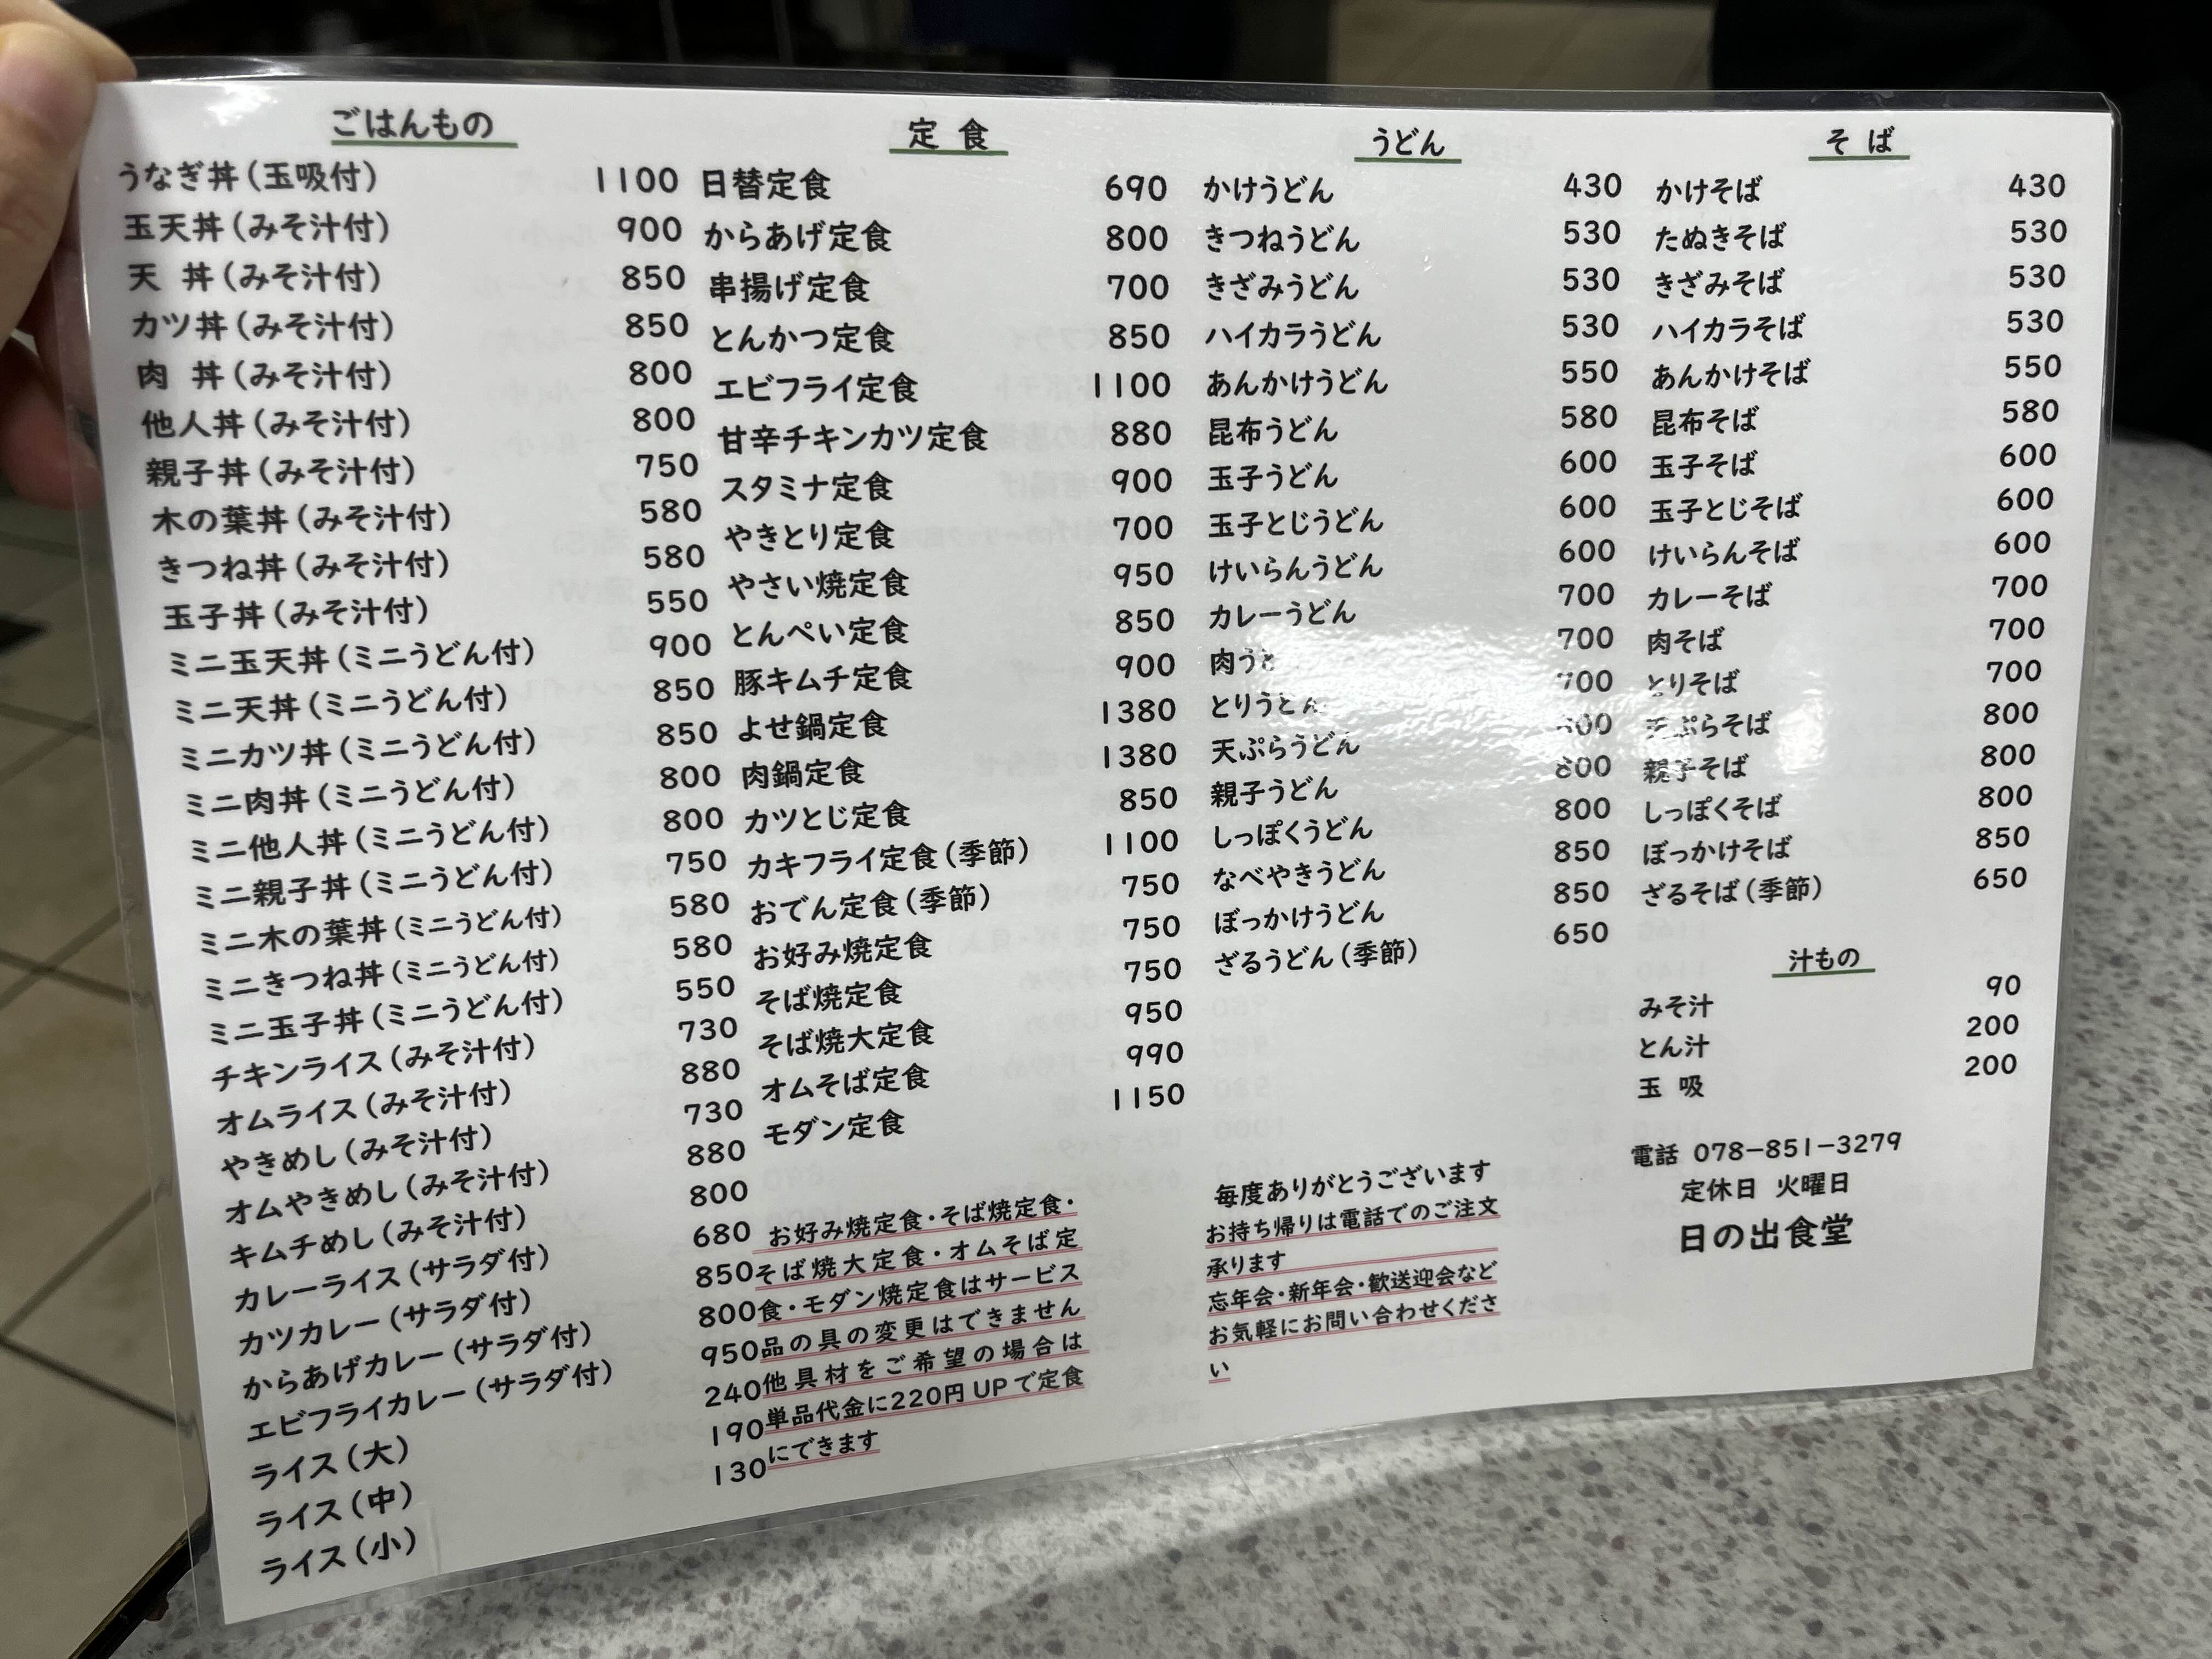 ごはんもの
うなぎ丼(玉吸付) 1100
玉天丼(みそ汁付) 900
天 丼(みそ汁付) 850
カツ丼(みそ汁付) 850
肉 丼(みそ汁付) 800
他人丼(みそ汁付) 800
親子丼(みそ汁付) 750
木の葉丼(みそ汁付) 580
きつね丼(みそ汁付) 580
玉子丼(みそ汁付) 550
ミニ玉天丼(ミニうどん付) 900
ミニ天丼(ミニうどん付) 850
ミニカツ丼(ミニうどん付) 850
ミニ肉丼(ミニうどん付) 800
ミニ他人丼(ミニうどん付) 800
ミニ親子丼(ミニうどん付) 750
ミニ木の葉丼(ミニうどん付) 580
ミニきつね丼(ミニうどん付) 580
ミニ玉子丼(ミニうどん付) 550
チキンライス(みそ汁付) 730
オムライス(みそ汁付) 880
やきめし(みそ汁付) 730
オムやきめし(みそ汁付) 880
キムチめし(みそ汁付) 800
カレーライス(サラダ付) 680
カツカレー(サラダ付) 850
からあげカレー(サラダ付) 800
エビフライカレー(サラダ付) 950
ライス(大) 240
ライス(中) 190
ライス(小) 130
定 食
日替定食 690
からあげ定食 800
串揚げ定食 700
とんかつ定食 850
エビフライ定食 1100
甘辛チキンカツ定食 880
スタミナ定食 900
やきとり定食 700
やさい焼定食 950
とんぺい定食 850
豚キムチ定食 900
よせ鍋定食 1380
肉鍋定食 1380
カツとじ定食 850
カキフライ定食(季節) 1100
おでん定食(季節) 750
お好み焼定食 750
そば焼定食 750
そば焼大定食 950
オムそば定食 990
モダン定食 1150
お好み焼定食・そば焼定食・
そば焼大定食・オムそば定
食・モダン焼定食はサービス
品の具の変更はできません
他具材をご希望の場合は
単品代金に220円UPで定食
にできます
うどん
かけうどん 430
きつねうどん 530
きざみうどん 530
ハイカラうどん 530
あんかけうどん 550
昆布うどん 580
玉子うどん 600
玉子とじうどん 600
けいらんうどん 600
カレーうどん 700
肉うど 700
とりうどん 700
天ぷらうどん
親子うどん 800
しっぽくうどん 800
なべやきうどん 850
ぼっかけうどん 850
ざるうどん(季節) 650
毎度ありがとうございます
お持ち帰りは電話でのご注文
承ります
忘年会・新年会・歓送迎会など
お気軽にお問い合わせくださ
い
そ ば
かけそば 430
たぬきそば 530
きざみそば 530
ハイカラそば 530
あんかけそば 550
昆布そば 580
玉子そば 600
玉子とじそば 600
けいらんそば 600
カレーそば 700
肉そば 700
とりそば 700
天ぷらそば 800
親子そば 800
しっぽくそば 800
ぼっかけそば 850
ざるそば(季節) 650
汁もの
みそ汁 90
とん汁 200
玉 吸 200
電話 078-851-3279
定休日 火曜日
日の出食堂